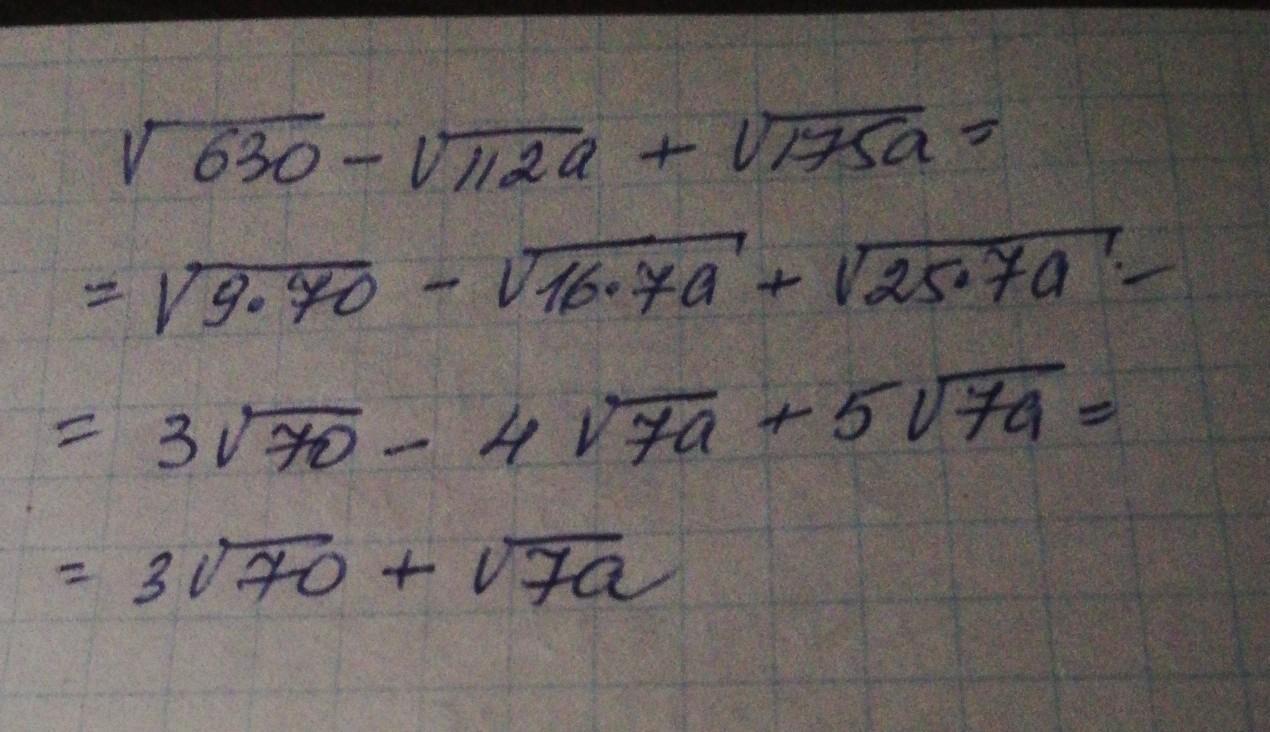 √630 - √112a + √175a =
= √9·70 - √16·7a + √25·7a -
= 3√70 - 4√7a + 5√7a =
= 3√70 + √7a